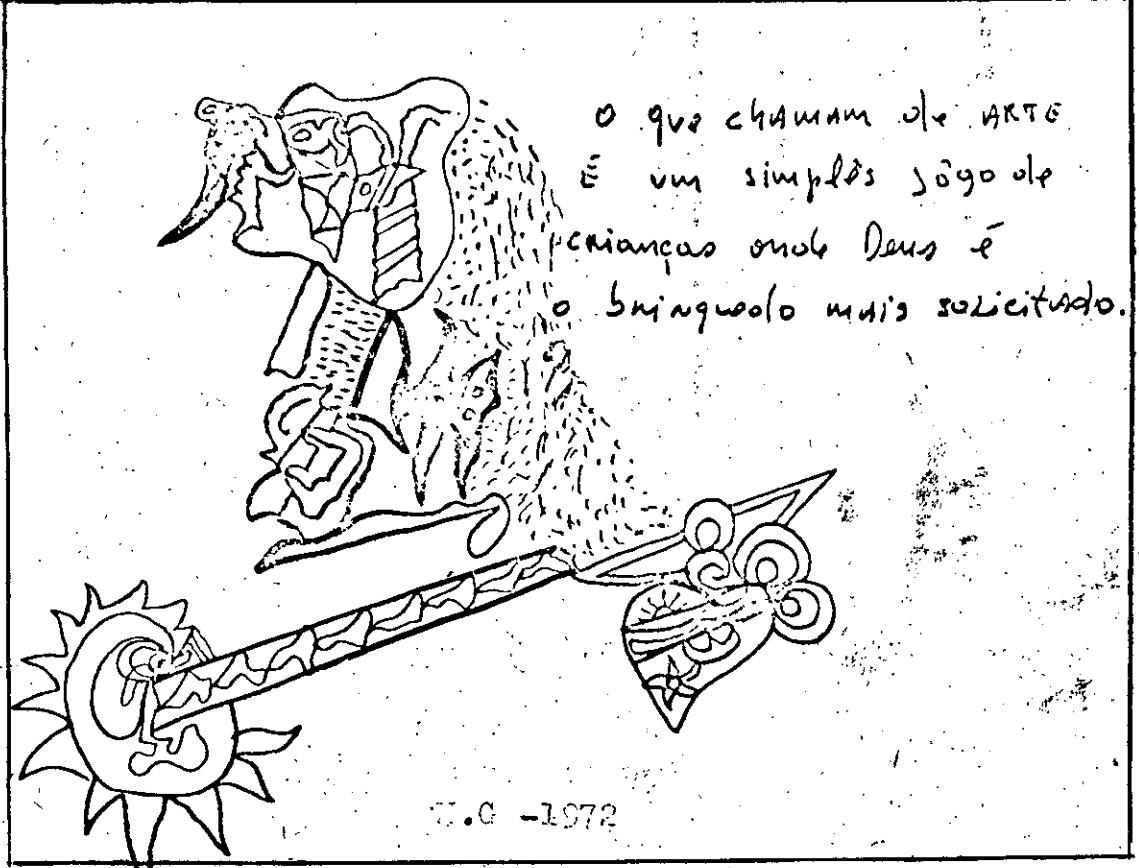 O que CHAMAM de ARTE
É um simplês jôgo de
crianças onde Deus é
o brinquedo mais solicitado.
-1972